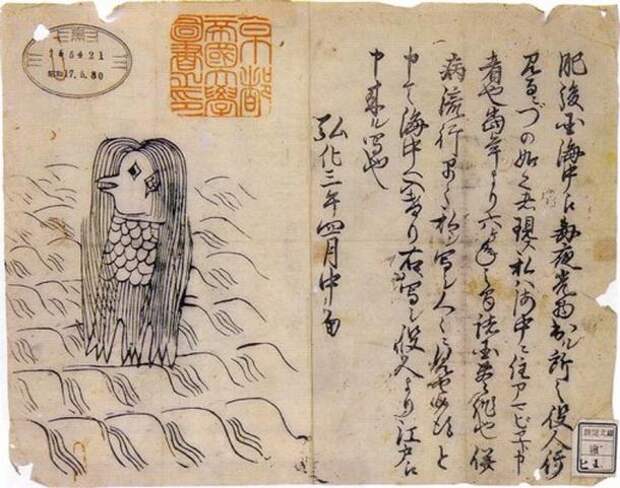 肥後国海中え毎夜光物出ル所之役人行
見るニづの如く者現ス私ハ海中ニ住アマビヱト申
者也當年より六ケ年之間諸国豊作也併
病流行早々私ヲ写シ人々ニ見せ候得と
申て海中へ入けり右写シ役人より江戸え
申来ル写也
弘化三年四月中旬
京都
帝國大學
圖書之印
昭和17.5.30